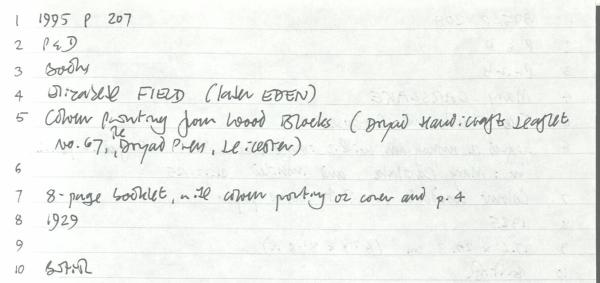 1 1995 P 207
2 P&D
3 Books
4 Elizabeth FIELD (later EDEN)
5 Colour Printing from Wood Blocks (Dryad Handicrafts Leaflet
No. 67, The Dryad Press, Leicester)
6
7 8-page booklet, with colour printing on cover and p. 4
8 1929
9
10